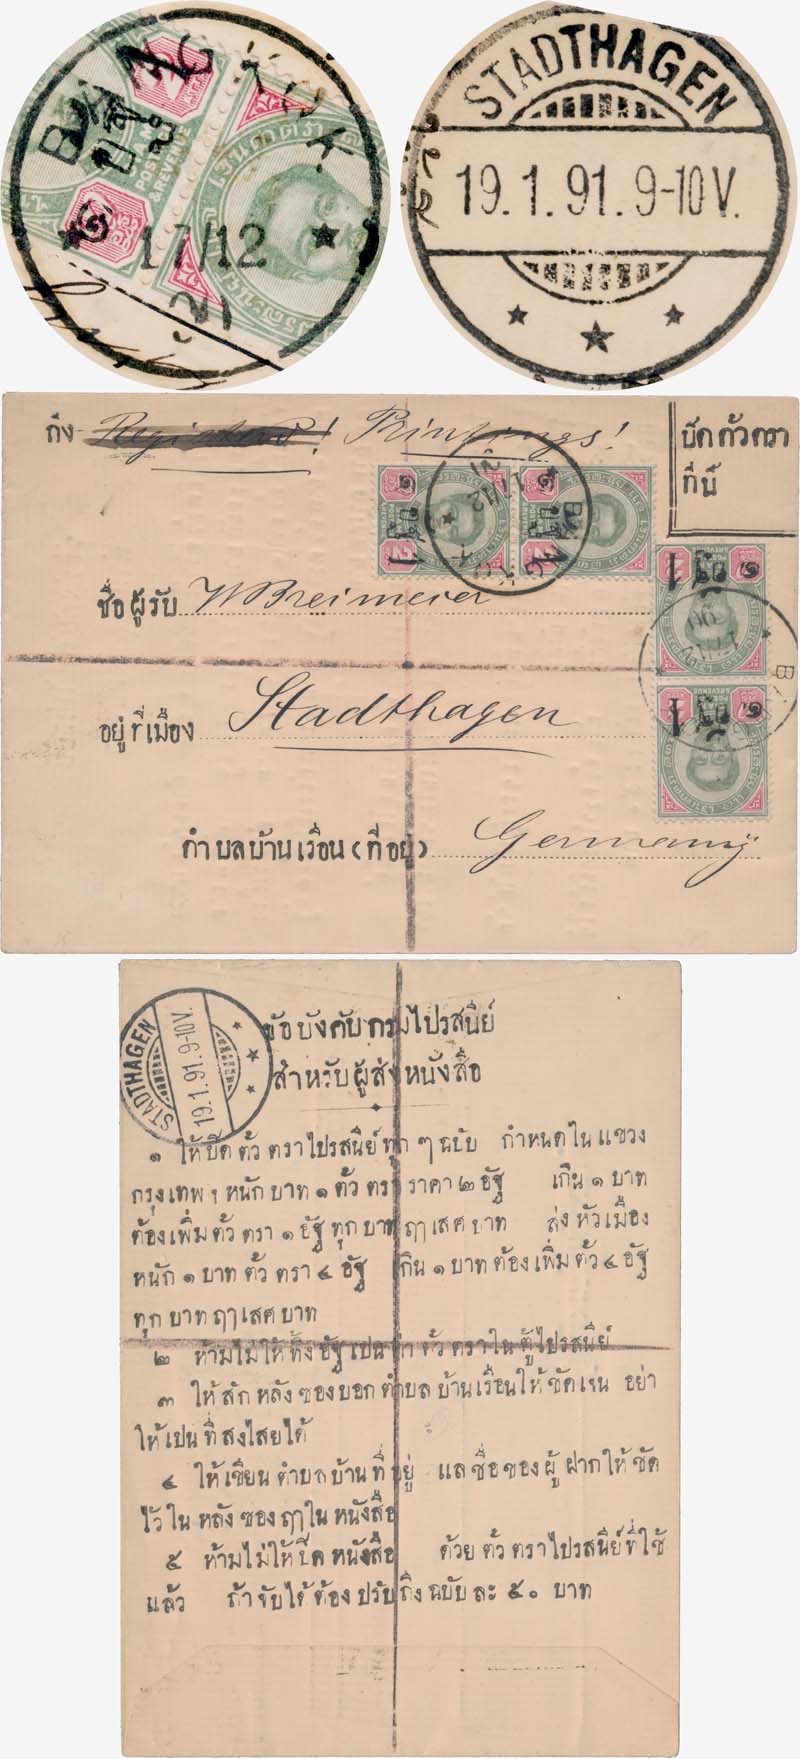 BANGKOK
17/12
STADTHAGEN
19.1.91.9-10V.
ถึง Registered! Printings!
ปิดตั๋วตรา
ที่นี่
BANGKOK
17/12
ชื่อผู้รับ W Breimeier
17/12
90
อยู่ที่เมือง Stadthagen
ตำบลบ้านเรือน (ที่อยู่) Germany
STADTHAGEN
19.1.91.9-10V.
ข้อบังคับกรมไปรสนีย์
สำหรับผู้ส่งหนังสือ
๑ ให้ปิดตั๋วตราไปรสนีย์ทุก ๆ ฉบับ กำหนดในแขวง
กรุงเทพฯ หนักบาท ๑ ตั๋วตราราคา ๒ อัฐ เกิน ๑ บาท
ต้องเพิ่มตั๋วตรา ๑ อัฐทุกบาทฤๅเศศบาท ส่งหัวเมือง
หนัก ๑ บาทตั๋วตรา ๔ อัฐ เกิน ๑ บาทต้องเพิ่มตั๋ว ๔ อัฐ
ทุกบาทฤๅเศศบาท
๒ ห้ามไม่ให้ทิ้งอัฐเปน ตั๋วตราในตู้ไปรสนีย์
๓ ให้สลักหลังซองบอกตำบลบ้านเรือนให้ชัดเจน อย่า
ให้เปนที่สงไสยได้
๔ ให้เขียนตำบลบ้านที่อยู่ แลชื่อของผู้ฝากให้ชัด
ไว้ในหลังซองฤๅในหนังสือ
๕ ห้ามไม่ให้ปิดหนังสือ ด้วยตั๋วตราไปรสนีย์ที่ใช้
แล้ว ถ้าจับได้ต้องปรับถึงฉบับละ ๕๐ บาท